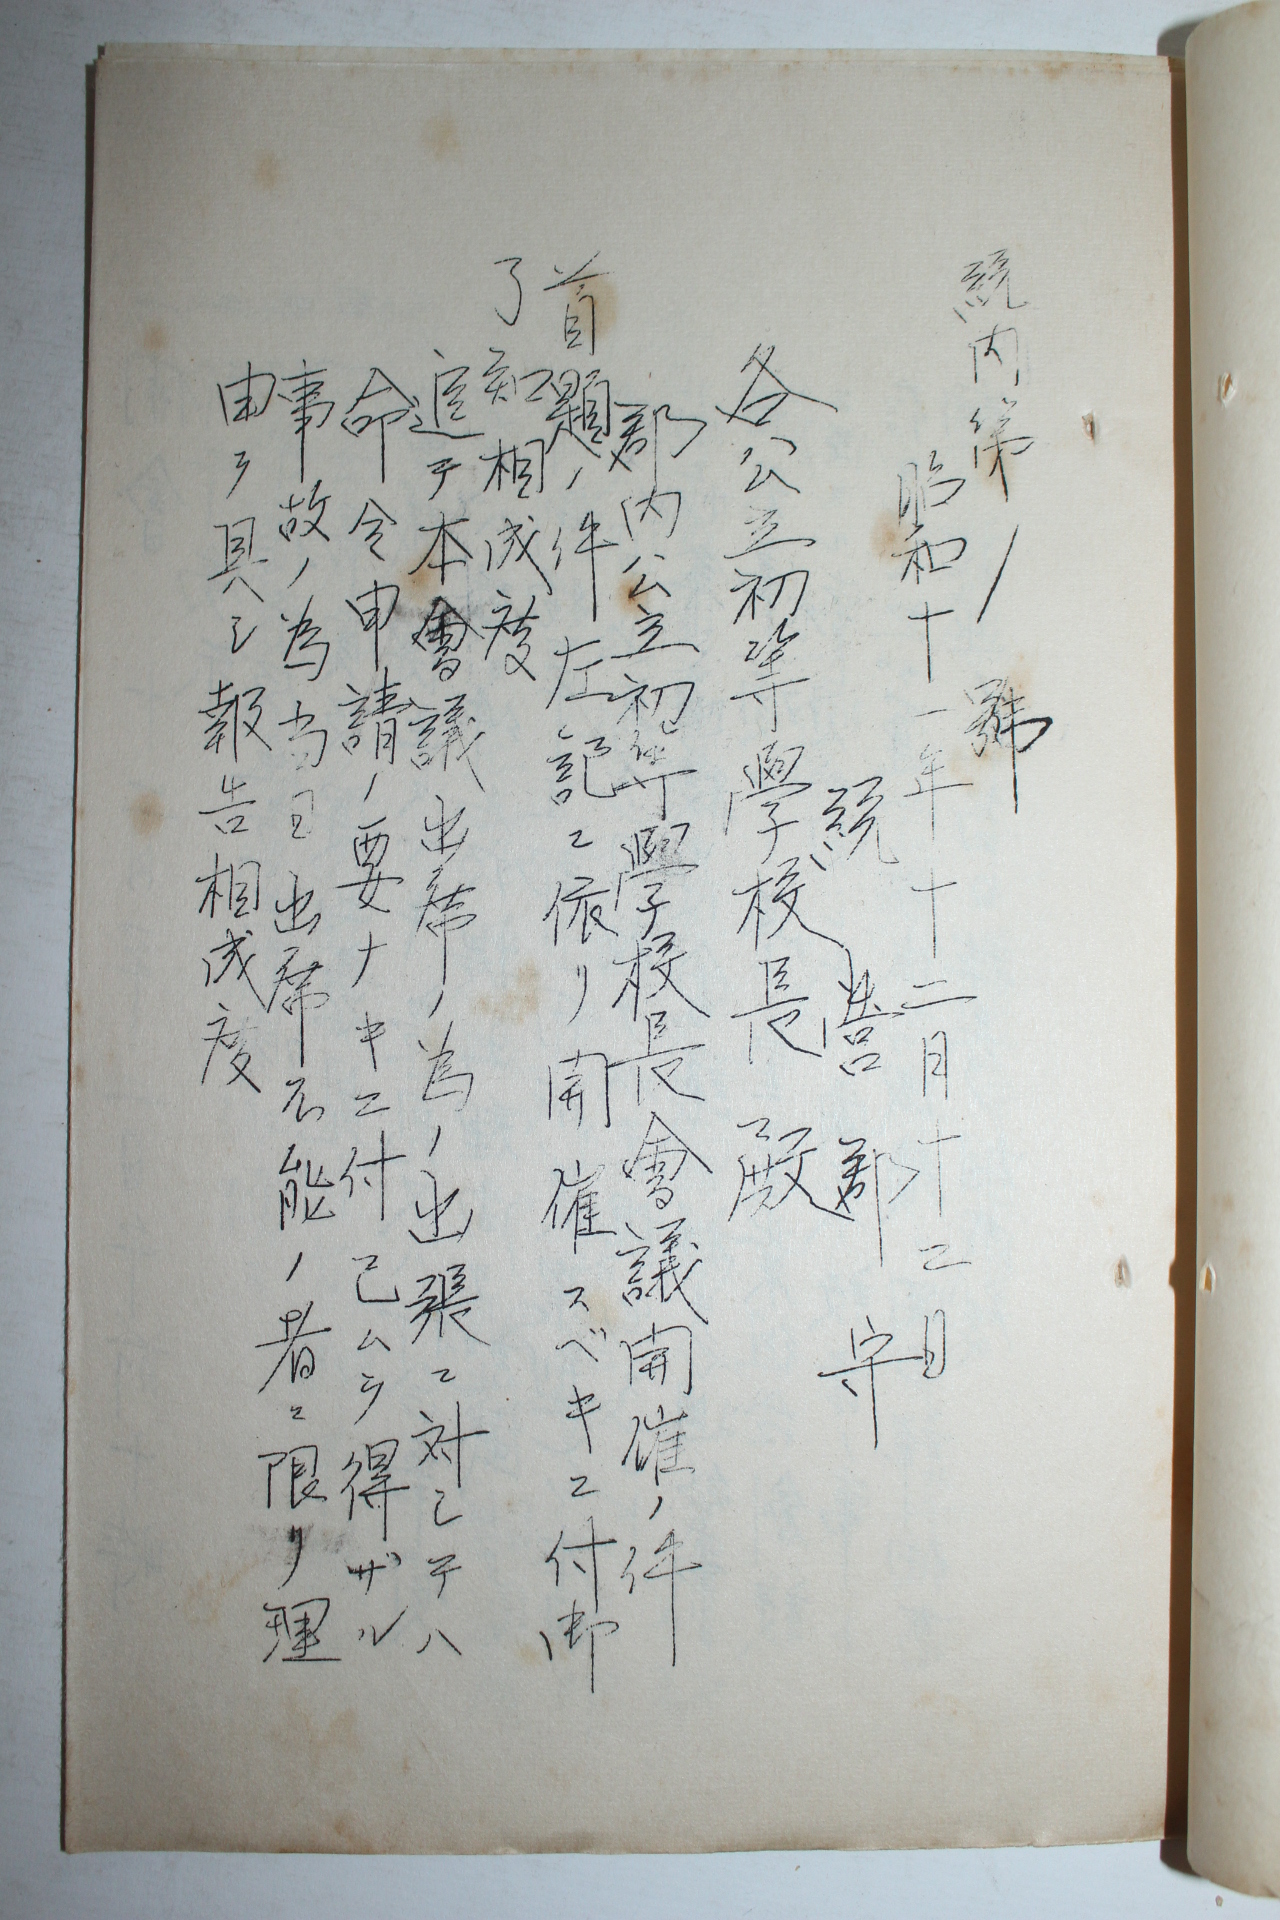 統内第ノ 號
昭和十一年十二月十二日
統營郡守
各公立初等學校長殿
郡内公立初等學校長會議開催ノ件
首題ノ件左記ニ依リ開催スベキニ付御
了知相成度
追テ本會議出席ノ為ノ出張ニ対シテハ
命令申請ノ要ナキニ付已ムヲ得ザル
事故ノ為当日出席不能ノ者ニ限リ理
由ヲ具シ報告相成度